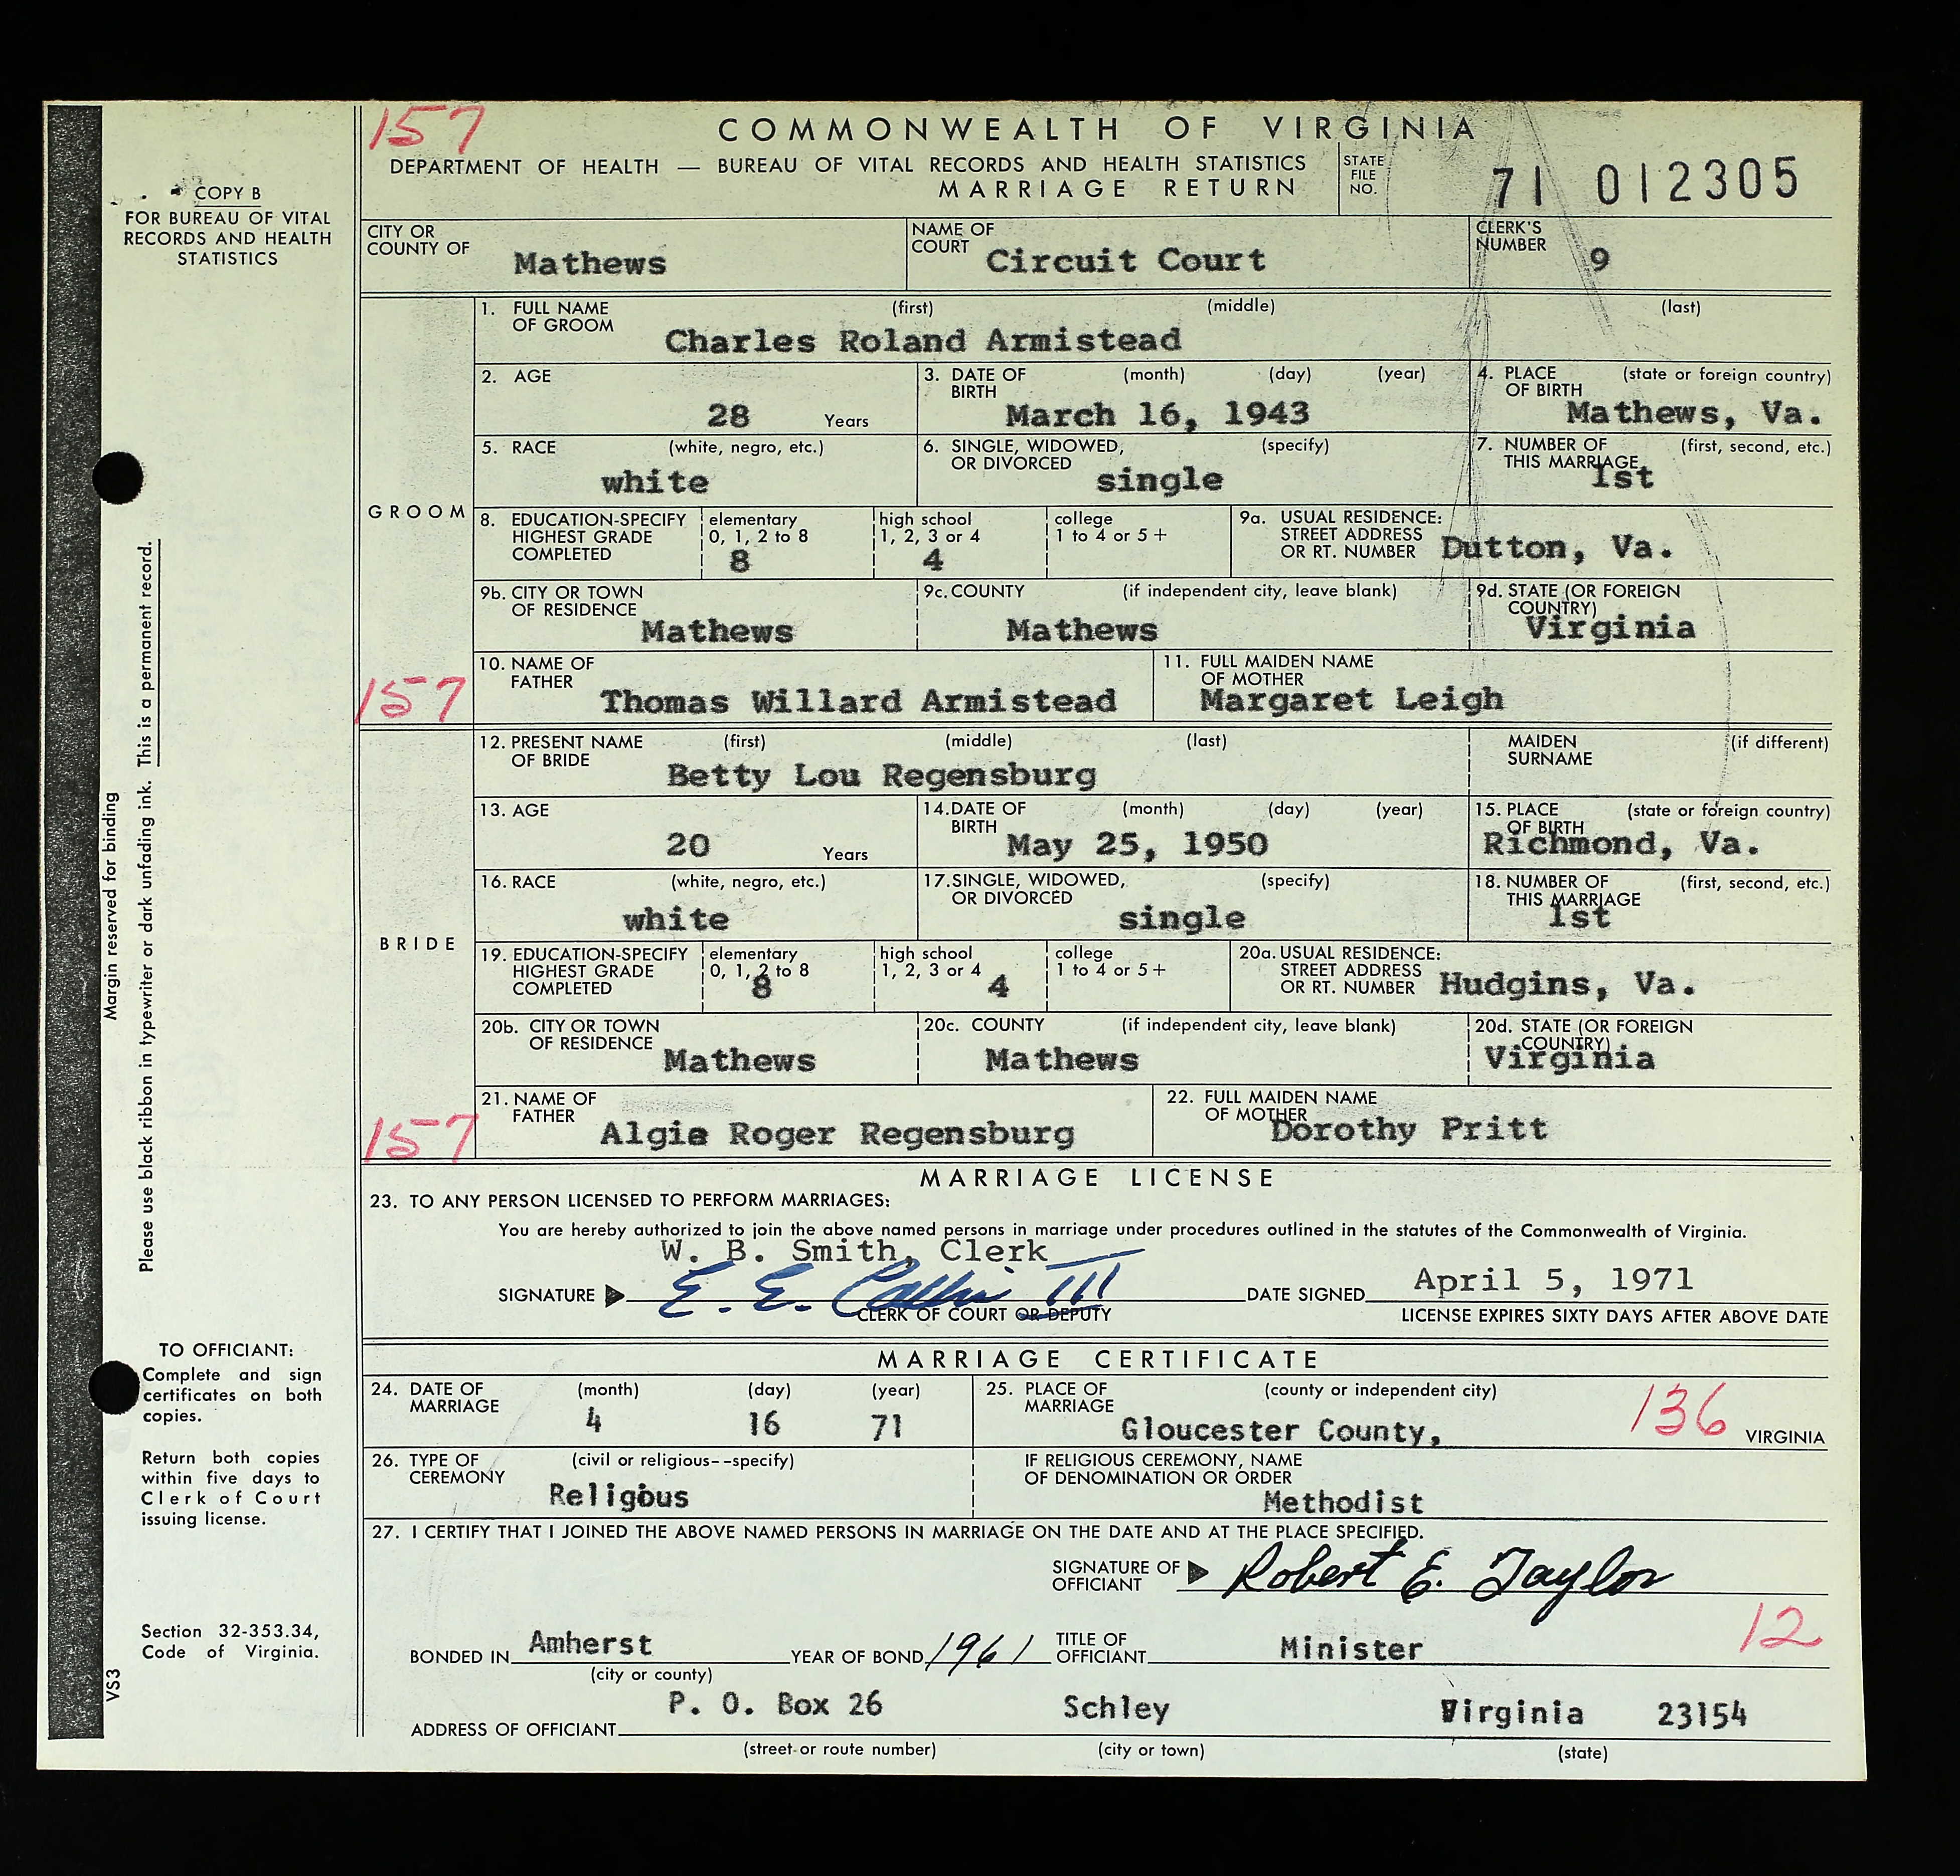 157
COMMONWEALTH OF VIRGINIA
DEPARTMENT OF HEALTH — BUREAU OF VITAL RECORDS AND HEALTH STATISTICS
MARRIAGE RETURN
STATE FILE NO. 71 012305
COPY B
FOR BUREAU OF VITAL
RECORDS AND HEALTH
STATISTICS
CITY OR COUNTY OF Mathews
NAME OF COURT Circuit Court
CLERK'S NUMBER 9
GROOM
1. FULL NAME OF GROOM (first) (middle) (last)
Charles Roland Armistead
2. AGE 28 Years
3. DATE OF BIRTH (month) (day) (year)
March 16, 1943
4. PLACE OF BIRTH (state or foreign country)
Mathews, Va.
5. RACE (white, negro, etc.)
white
6. SINGLE, WIDOWED, OR DIVORCED (specify)
single
7. NUMBER OF THIS MARRIAGE (first, second, etc.)
1st
8. EDUCATION-SPECIFY HIGHEST GRADE COMPLETED
elementary 0, 1, 2 to 8
8
high school 1, 2, 3 or 4
4
college 1 to 4 or 5+
9a. USUAL RESIDENCE: STREET ADDRESS OR RT. NUMBER Dutton, Va.
9b. CITY OR TOWN OF RESIDENCE Mathews
9c. COUNTY (if independent city, leave blank)
Mathews
9d. STATE (OR FOREIGN COUNTRY)
Virginia
157
10. NAME OF FATHER Thomas Willard Armistead
11. FULL MAIDEN NAME OF MOTHER
Margaret Leigh
BRIDE
12. PRESENT NAME OF BRIDE (first) (middle) (last)
Betty Lou Regensburg
MAIDEN SURNAME (if different)
13. AGE 20 Years
14. DATE OF BIRTH (month) (day) (year)
May 25, 1950
15. PLACE OF BIRTH (state or foreign country)
Richmond, Va.
16. RACE (white, negro, etc.)
white
17. SINGLE, WIDOWED, OR DIVORCED (specify)
single
18. NUMBER OF THIS MARRIAGE (first, second, etc.)
1st
19. EDUCATION-SPECIFY HIGHEST GRADE COMPLETED
elementary 0, 1, 2 to 8
8
high school 1, 2, 3 or 4
4
college 1 to 4 or 5+
20a. USUAL RESIDENCE: STREET ADDRESS OR RT. NUMBER Hudgins, Va.
20b. CITY OR TOWN OF RESIDENCE Mathews
20c. COUNTY (if independent city, leave blank)
Mathews
20d. STATE (OR FOREIGN COUNTRY)
Virginia
157
21. NAME OF FATHER Algie Roger Regensburg
22. FULL MAIDEN NAME OF MOTHER
Dorothy Pritt
MARRIAGE LICENSE
23. TO ANY PERSON LICENSED TO PERFORM MARRIAGES:
You are hereby authorized to join the above named persons in marriage under procedures outlined in the statutes of the Commonwealth of Virginia.
W. B. Smith, Clerk
SIGNATURE E. E. Callis III
CLERK OF COURT OR DEPUTY
DATE SIGNED April 5, 1971
LICENSE EXPIRES SIXTY DAYS AFTER ABOVE DATE
MARRIAGE CERTIFICATE
24. DATE OF MARRIAGE (month) (day) (year)
4 16 71
25. PLACE OF MARRIAGE (county or independent city)
Gloucester County, 136 VIRGINIA
26. TYPE OF CEREMONY (civil or religious--specify)
Religous
IF RELIGIOUS CEREMONY, NAME OF DENOMINATION OR ORDER
Methodist
27. I CERTIFY THAT I JOINED THE ABOVE NAMED PERSONS IN MARRIAGE ON THE DATE AND AT THE PLACE SPECIFIED.
SIGNATURE OF OFFICIANT Robert E. Taylor
12
BONDED IN Amherst YEAR OF BOND 1961 TITLE OF OFFICIANT Minister
(city or county)
ADDRESS OF OFFICIANT P. O. Box 26 Schley Virginia 23154
(street or route number) (city or town) (state)
Margin reserved for binding
Please use black ribbon in typewriter or dark unfading ink. This is a permanent record.
TO OFFICIANT:
Complete and sign
certificates on both
copies.
Return both copies
within five days to
Clerk of Court
issuing license.
Section 32-353.34,
Code of Virginia.
VS3